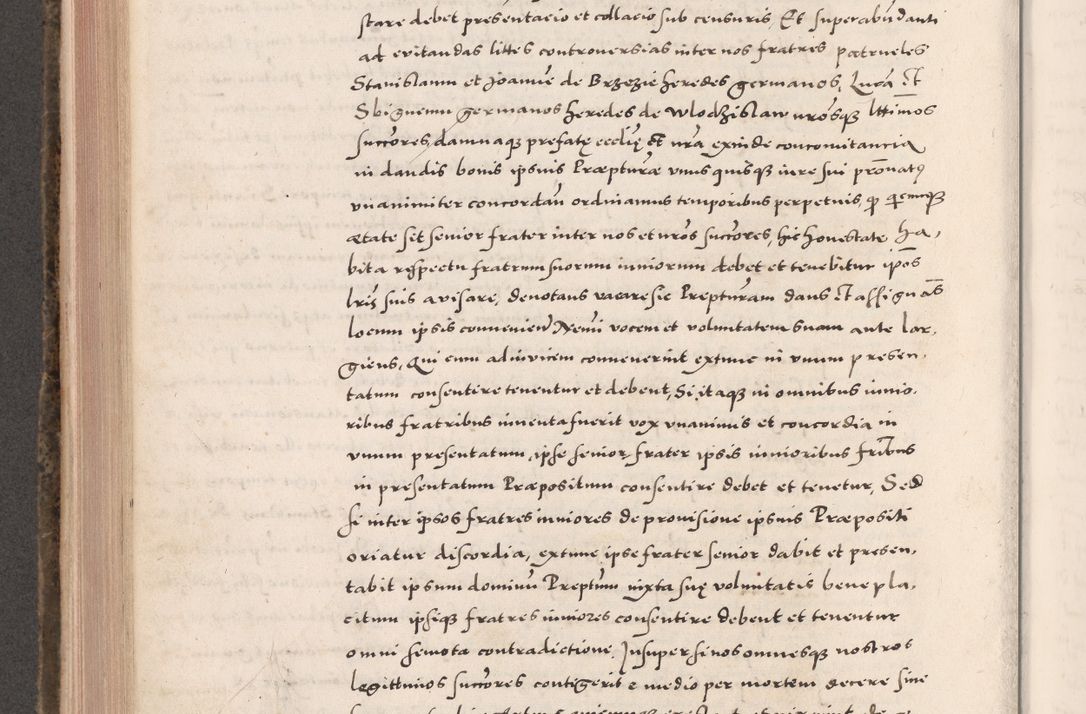 stare debet presentacio et collacio sub censuris, Et superabūdanti
ad evitandas littes controversias inter nos fratres patrueles
Stanislaum et Joannē de Brzezie heredes germanos, Lucā et
Sbigneum germanos heredes de Wlodzislaw nrōsqȝ lttimos
succōres, damnaqȝ prefatę ecclię et nrā exinde concomitancia
in dandis bonis ipsius Præpturæ unusquisqȝ iure sui prōnatꝰ
unanimiter concordāti ordinamus temporibus perpetuis, qȝ quicunqȝ
ætate sit senior frater inter nos et nrōs succōres, hic honestate ha,
bita respectu fratrum suorum iuniorum debet et tenebitur ipōs
lrīs suis avisare, denotans vacare sic Prepturam dans et assignās
locum ipsis convenien vocem et voluntatem suam ante lar,
giens, Qui cum adinvicem convenerint extunc in unum presen,
tatum consentire tenentur et debent, Si itaqȝ in omnibus iunio,
ribus fratribus inventa fuerit vox unanimis et concordia in
unum presentatum, ipse senior frater ipsis iunioribus frībus
in presentatum Præpositum consentire debet et tenetur, Sed
si inter ipsos fratres iuniores de provisione ipsius Præpositi
oriatur discordia, extunc ipse frater senior dabit et presen,
tabit ipsum dominū Preptūm iuxta suę voluntatis benepla,
citum ipsiqȝ fratres iuniores consentire debent et tenentur
omni semota contradictione, Insuper si nos omnesqȝ nostros
legittimos succōres contigerit e medio per mortem decere sine